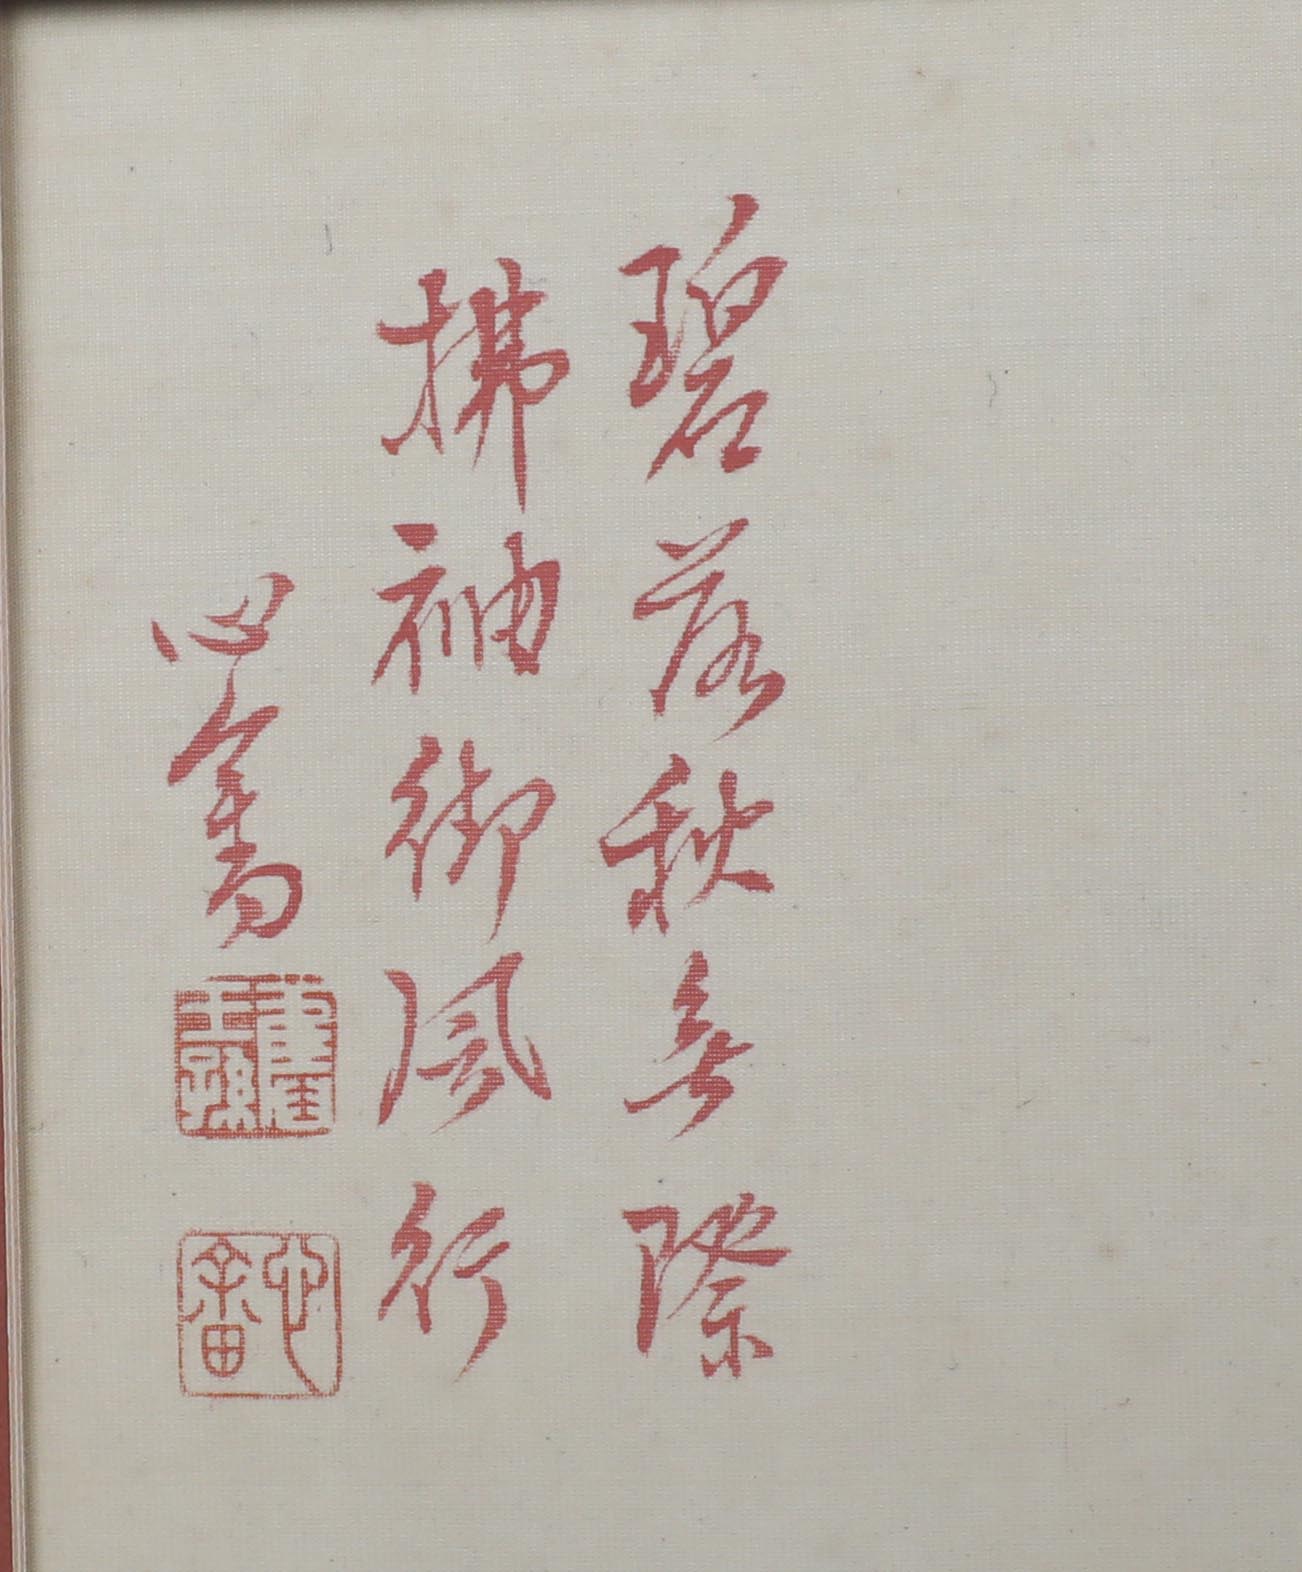 碧落秋無際
拂袖御風行
心畬
舊王孫
心畬